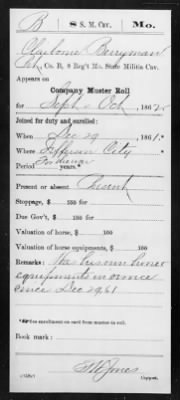 B | 8 S. M. Cav. | Mo.
Clayborn Berryman
Pvt, Co. B, 8 Reg't Mo. State Militia Cav.
Appears on
Company Muster Roll
for Sept & Oct, 1862.
Joined for duty and enrolled:
When Dec 29, 1861.*
Where Jefferson City
Period years.*
Present or absent Present
Stoppage, $ 100 for
Due Gov't, $ 100 for
Valuation of horse, $ 100
Valuation of horse equipments, $ 100
Remarks: Has his own horse
equipments in service
since Dec 29, 61
*See enrollment on card from muster-in roll.
Book mark:
Jones
Copyist.